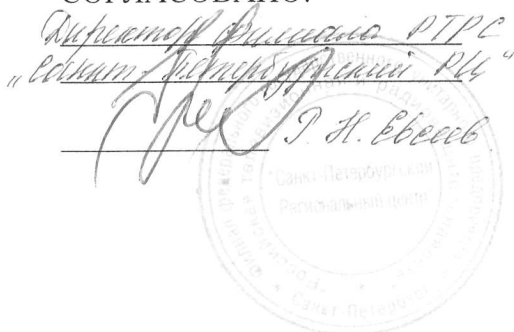 СОГЛАСОВАНО:
Директор филиала РТРС
„Санкт-Петербургский РЦ"
Г. Н. Евсеев
"Санкт-Петербургский
Региональный центр"